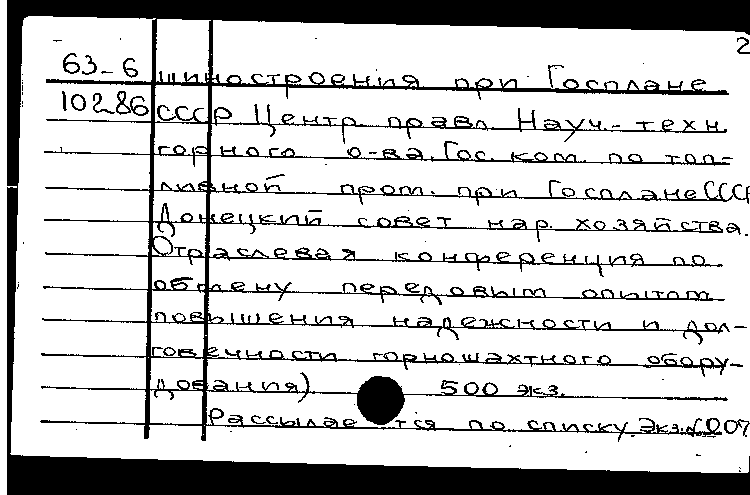 2
63-6 шиностроения при Госплане
10286 СССР Центр. правл. Науч.-техн.
горного о-ва. Гос. ком. по топ-
ливной пром. при Госплане СССР
Донецкий совет нар. хозяйства.
Отраслевая конференция по
обмену передовым опытом
повышения надежности и дол-
говечности горношахтного обору-
дования). 500 экз.
Рассылается по списку. Экз.